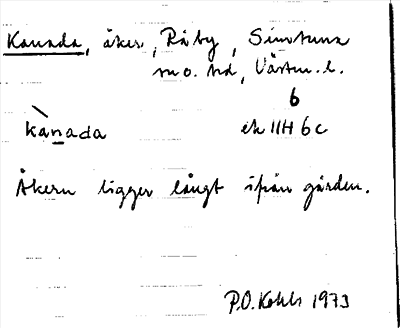 Kanada, åker, Råby, Simtuna
sn o. hd, Västm. l.
6
kànada ek 11H 6c
Åkern ligger långt ifrån gården.
P.O. Kohls 1973